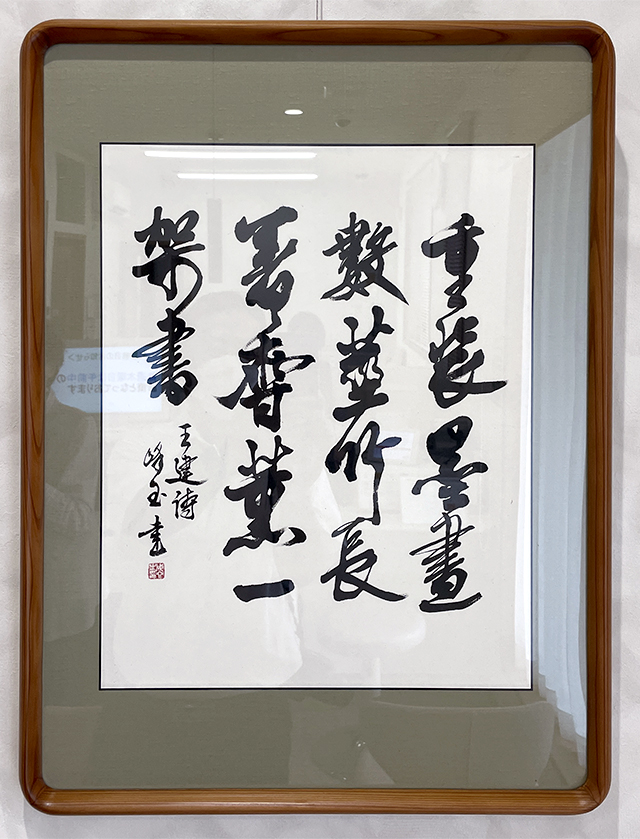 重裝墨畫
數莖竹長
著香薰一
架書
王建詩
峰玉書